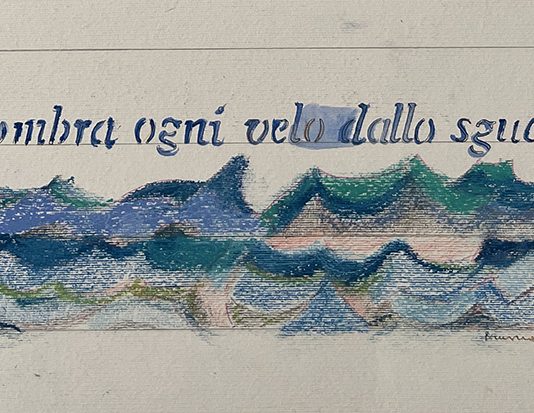 ombra ogni velo dallo sgua